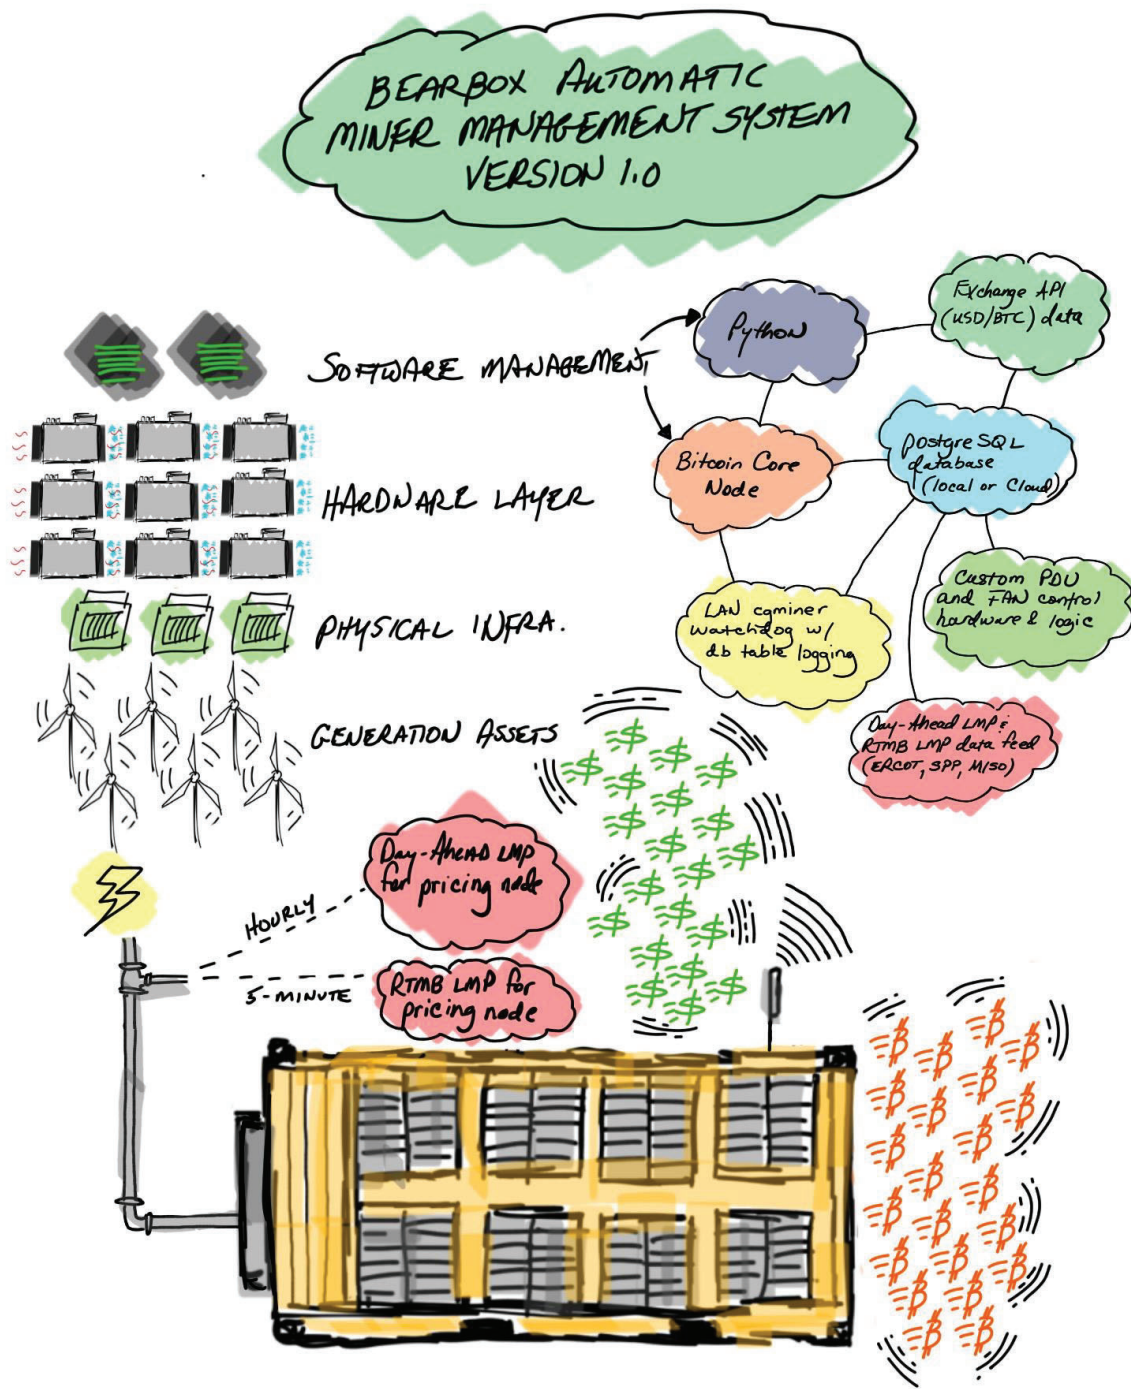 BEARBOX AUTOMATIC
MINER MANAGEMENT SYSTEM
VERSION 1.0
SOFTWARE MANAGEMENT
HARDWARE LAYER
PHYSICAL INFRA.
GENERATION ASSETS
Python
Exchange API
(USD/BTC) data
Bitcoin Core
Node
postgreSQL
database
(local or Cloud)
LAN cgminer
watchdog w/
db table logging
Custom PDU
and FAN control
hardware & logic
Day-Ahead LMP &
RTMB LMP data feed
(ERCOT, SPP, MISO)
Day-Ahead LMP
for pricing node
HOURLY
RTMB LMP for
pricing node
5-MINUTE